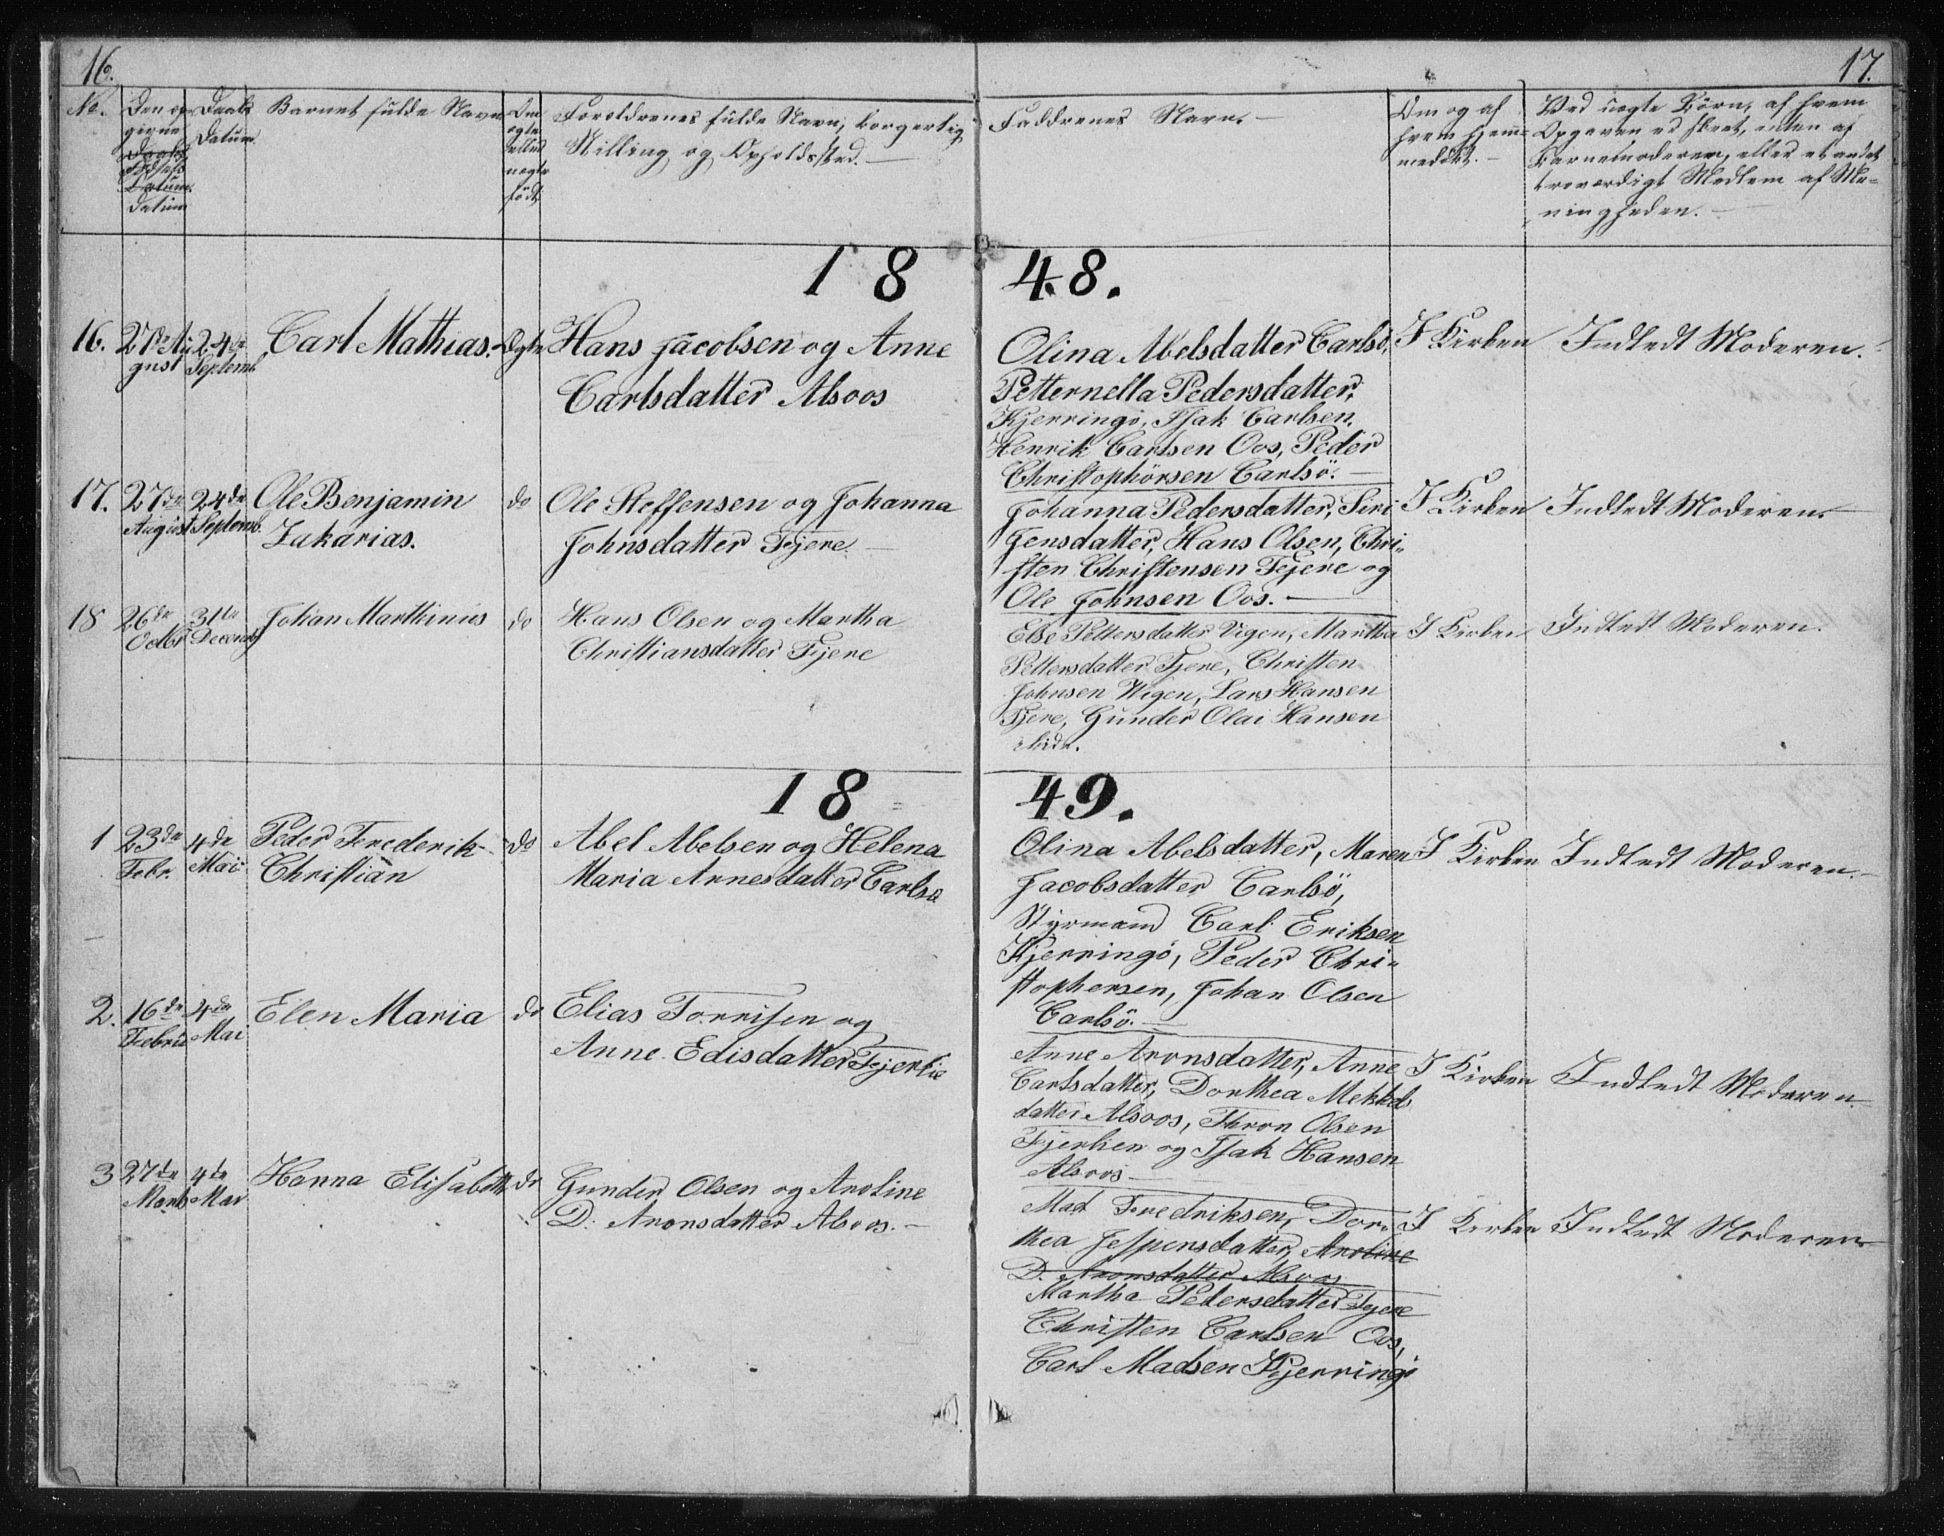 16.
17.
No.
Den op-
givne
Daabs
Fødsels
Datum.
datum
Daabs
Datum.
Barnets fulde Navn
Om
ægte
eller
uægte
født.
Forældrenes fulde Navn, borgerlig
Stilling og Opholdssted. —
Faddrenes Navne —
Om og af
hvem hjem-
medøbt. —
Ved uægte Børn, af hvem
Opgaven er skeet, enten af
Barnemoderen, eller et andet
troværdigt Medlem af Me-
nigheden. —
18 48.
16.
27de Au
gust
24de
Septemb.
Carl Mathias.
Ægte
Hans Jacobsen og Anne
Carlsdatter Alsoos
Olina Abelsdatter Carlsö,
Petternella Pedersdatter,
Kjerringö, Isak Carlsen,
Henrik Carlsen Oos, Peder
Christophörsen Carlsö. —
I Kirken
Indledt Moderen.
17.
27de
August
24de
Septemb.
Ole Benjamin
Zakarias.
do
Ole Steffensen og Johanna
Johnsdatter Fjere. —
Johanna Pedersdatter, Siri
Jensdatter, Hans Olsen, Chri-
sten Christensen Fejere og
Ole Johnsen Oos. —
I Kirken
Indledt Moderen. —
18
26de
Octbr
31te
Decemb
Johan Marthinus
do
Hans Olsen og Martha
Christiansdatter Fjere
Else Pettersdatter Vigen, Martha
Pettersdatter Fjere, Christen
Johnsen Vigen, Lars Hansen
Fjere, Gunder Olai Hansen
ibidn.
I Kirken
Indledt Moderen.
18 49.
1
23de
Febr.
4de
Mai
Peder Frederik
Christian
do
Abel Abelsen og Helena
Maria Arnesdatter Carlsö
Olina Abelsdatter, Maren
Jacobsdatter Carlsö,
Styrmand Carl Eriksen
Kjerringö, Peder Chri-
stophersen, Johan Olsen
Carlsö. —
I Kirken
Indledt Moderen. —
2.
16de
Febru
4de
Mai
Elen Maria
do
Elias Torrisen og
Anne Edisdatter Fjerlie
Anne Aronsdatter, Anne
Carlsdatter, Dorthea Mekkels
datter Alsoos, Thron Olsen
Fjerlien og Isak Hansen
Alsoos —
I Kirken
Indledt Moderen.
3
27de
Marts
4de
Mai
Hanna Elisabeth
do
Gunder Olsen og Aroline
D: Aronsdatter Alsoos. —
Mad Fredriksen, Dor-
thea Jespersdatter, Aroline
D. Aronsdatter Alsoos
Martha Pedersdatter Fjere
Christen Carlsen Oos,
Carl Madsen Kjerringö
I Kirken
Indledt Moderen